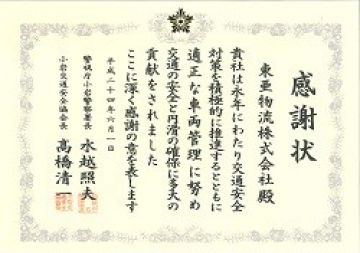 感謝状
東亜物流株式会社殿
貴社は永年にわたり交通安全
対策を積極的に推進するとともに
適正な車両管理に努め
交通の安全と円滑の確保に多大の
貢献をされました
ここに深く感謝の意を表します
平成二十四年六月一日
警視庁小岩警察署長
水越照夫
小岩交通安全協会長
高橋清一